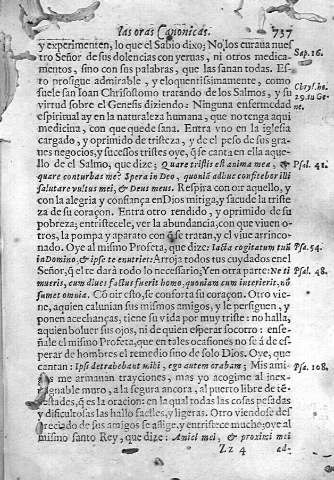 las oras Canonicas. 737
y experimenten, lo que el Sabio dixo; No los curaua nues
tro Señor de sus dolencias con yeruas, ni otros medica-
mentos, sino con sus palabras, que las sanan todas. Es-
to prosigue admirable, y eloquentissimamente, como
suele san Ioan Chrisostomo tratando de los Salmos, y su
virtud sobre el Genesis diziendo: Ninguna enfermedad
espiritual ay en la naturaleza humana, que no tenga aqui
medicina, con que quede sana. Entra vno en la iglesia
cargado, y oprimido de tristeza, y de el peso de sus gra-
ues negocios, y sucessos tristes oye, q̃ se canta en ella aque
llo de el Salmo, que dize; Quare tristis est anima mea, &
quare conturbas me? Spera in Deo, quoniã adhuc confitebor illi
salutare vultus mei, & Deus meus. Respira con oir aquello, y
con la alegria y confiança en Dios mitiga, y sacude la triste
za de su coraçon. Entra otro rendido, y oprimido de su
pobreza; entristecele, ver la abundancia, con que viuen o-
tros, la pompa y aparato con q̃ se tratan, y el viue arrinco-
nado. Oye al mismo Profeta, que dize: Iacta cogitatum tuũ
in Domino, & ipse te enutriet: Arroja todos tus cuydados en el
Señor, q̃ el te dará todo lo necessario; Y en otra parte: Ne ti
mueris, cum diues factus fuerit homo, quoniam cum interierit, nõ
sumet omnia. Cõ oir esto, se conforta su coraçon. Otro vie-
ne, aquien calunian sus mismos amigos, y le persiguen, y
ponen acechanças, tiene su vida por muy triste: no halla,
aquien boluer sus ojos, ni de quien esperar socorro: ense-
ñale el mismo Profeta, que en tales ocasiones no se á de es-
perar de hombres el remedio sino de solo Dios. Oye, que
cantan: Ipsi detrahebant mihi, ego autem orabam; Mis ami-
os me armauan trayciones, mas yo acogime al inex-
gnable muro, a la segura ancora, al puerto libre de tẽ-
estades, q̃ es la oracion: en la qual todas las cosas pesadas
y dificultosas las hallo faciles, y ligeras. Otro viendose des
preciado de sus amigos se aflige, y entristece mucho; oye al
mismo santo Rey, que dize: Amici mei, & proximi mei
Zz 4 ad-
Sap. 16.
Chrys. ho.
29. su Ge-
ne.
Psal. 41.
Psa. 54.
Psal. 48.
Psa. 108.